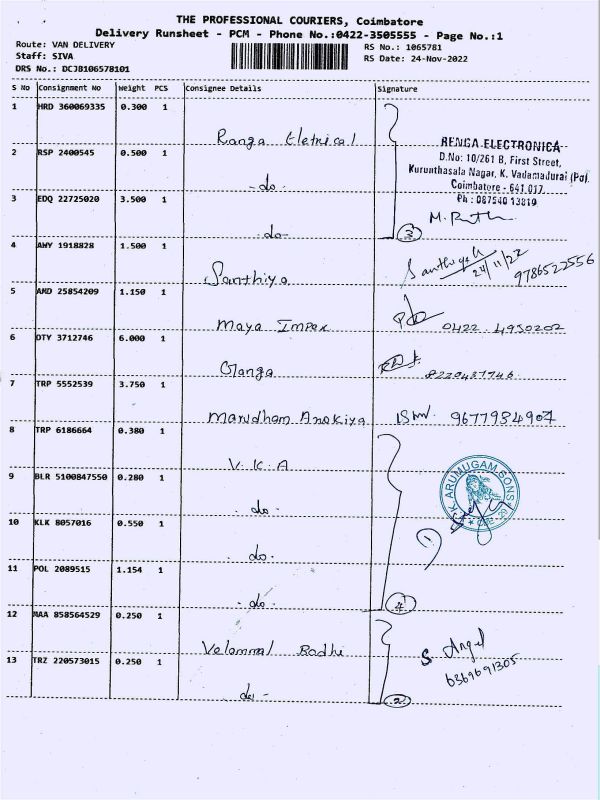 THE PROFESSIONAL COURIERS, Coimbatore
Delivery Runsheet - PCM - Phone No.:0422-3505555 - Page No.:1
Route: VAN DELIVERY
Staff: SIVA
DRS No.: DCJB106578101
RS No.: 1065781
RS Date: 24-Nov-2022
S No Consignment No Weight PCS Consignee Details Signature
1 HRD 360069335 0.300 1 Ranga Eletrical
2 RSP 2400545 0.500 1 - do -
3 EDQ 22725020 3.500 1 - do -
RENGA ELECTRONICA
D.No: 10/261 B, First Street,
Kurunthasala Nagar, K. Vadamadurai (Po).
Coimbatore - 641 017.
Ph : 087540 13819
3
4 AMY 1918828 1.500 1 Santhiya 24/11/22 9786522556
5 AMD 25854209 1.150 1 Maya Impex 0422 . 4950202
6 OTY 3712746 6.000 1 Ganga 8220437746
7 TRP 5552539 3.750 1 9677934907
8 TRP 6186664 0.380 1 V. K. A
9 BLR 5100847550 0.280 1 - do -
10 KLK 8057016 0.550 1 - do -
11 POL 2089515 1.154 1 - do -
K. ARUMUGAM SONS
4
12 MAA 858564529 0.250 1 S. Angel
13 TRZ 220573015 0.250 1 - do - 6369691305
2